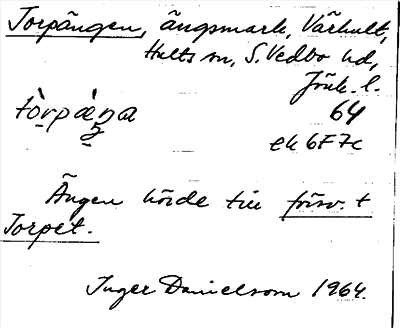 Torpängen, ängsmark, Värhult,
Hults sn, S. Vedbo hd,
Jönk. l.
64
ek 6F7c
Ängen hörde till försv. t
Torpet.
Inger Danielsson 1964.